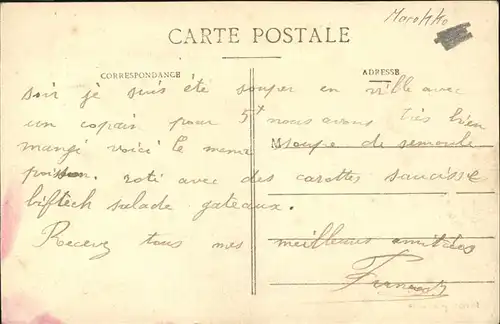 Marokko
CARTE POSTALE
CORRESPONDANCE
ADRESSE
soir je suis été souper en ville avec
un copain pour 5f nous avons très bien
mangé voici le menu soupe de semoule
poisson. roti avec des carottes saucisse
biftech salade gateaux.
Recevez tous mes meilleures amitiées
Fernand